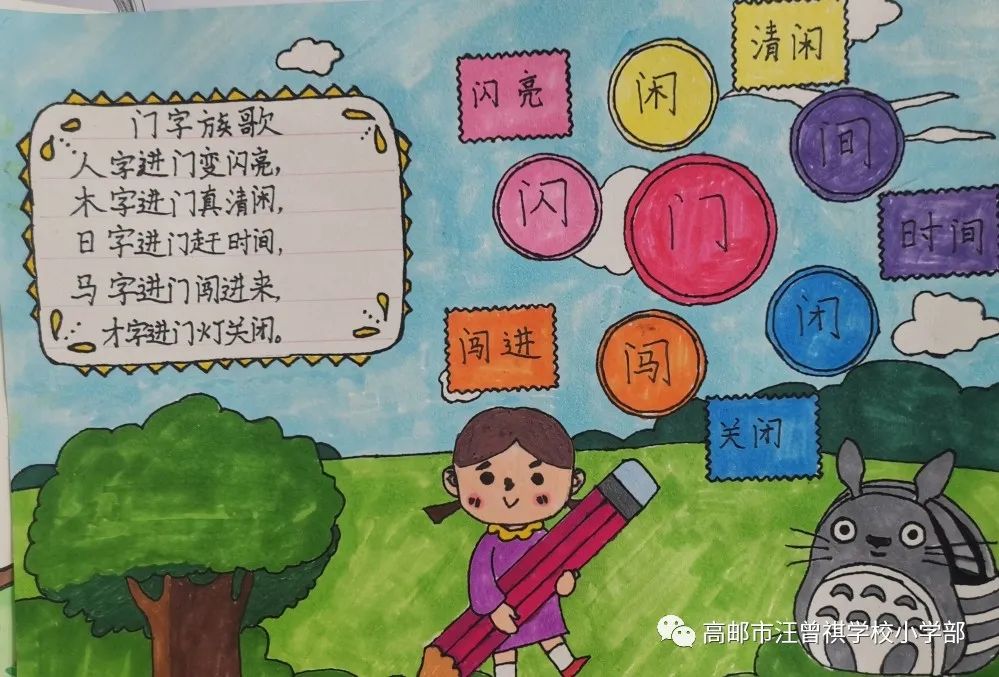 门字族歌
人字进门变闪亮,
木字进门真清闲,
日字进门赶时间,
马字进门闯进来,
才字进门灯关闭。
清闲
闪亮
闲
间
闪
门
时间
闭
闯进
闯
关闭
高邮市汪曾祺学校小学部